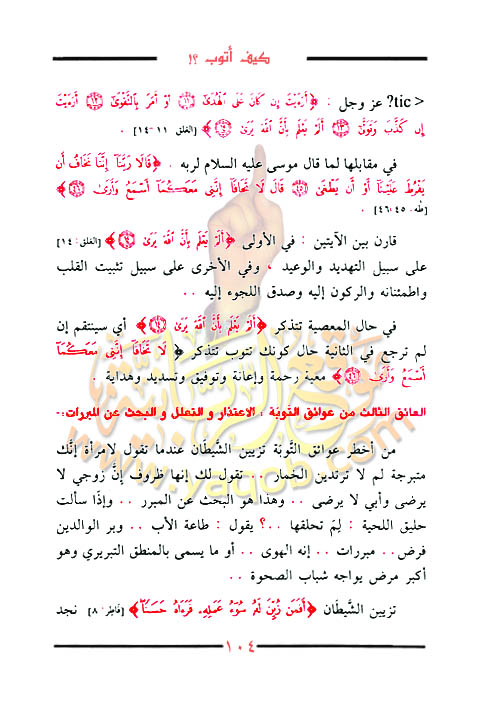 كيف أتوب ؟!
< tic? عز وجل : ﴿أَرَءَيْتَ إِن كَانَ عَلَى الْهُدَىٰٓ ﴿١١﴾ أَوْ أَمَرَ بِالتَّقْوَىٰٓ ﴿١٢﴾ أَرَءَيْتَ
إِن كَذَّبَ وَتَوَلَّىٰٓ ﴿١٣﴾ أَلَمْ يَعْلَم بِأَنَّ اللَّهَ يَرَىٰ ﴿١٤﴾﴾ [العلق ١١-١٤] .
في مقابلها لما قال موسى عليه السلام لربه . ﴿قَالَا رَبَّنَآ إِنَّنَا نَخَافُ أَن
يَفْرُطَ عَلَيْنَآ أَوْ أَن يَطْغَىٰ ﴿٤٥﴾ قَالَ لَا تَخَافَآ إِنَّنِي مَعَكُمَآ أَسْمَعُ وَأَرَىٰ ﴿٤٦﴾﴾
[طه- ٤٥، ٤٦] .
قارن بين الآيتين : في الأولى ﴿أَلَمْ يَعْلَم بِأَنَّ اللَّهَ يَرَىٰ ﴿١٤﴾﴾ [العلق: ١٤]
على سبيل التهديد والوعيد ، وفي الأخرى على سبيل تثبيت القلب
واطمئنانه والركون إليه وصدق اللجوء إليه . .
في حال المعصية تتذكر ﴿أَلَمْ يَعْلَم بِأَنَّ اللَّهَ يَرَىٰ ﴿١٤﴾﴾ أي سينتقم إن
لم ترجع في الثانية حال كونك تتوب تتذكر ﴿ لَا تَخَافَآ إِنَّنِي مَعَكُمَآ
أَسْمَعُ وَأَرَىٰ ﴿٤٦﴾﴾ معية رحمة وإعانة وتوفيق وتسديد وهداية .
العائق الثالث من عوائق التَّوبَة : الاعتذار و التعلل و البحث عن المبررات:-
من أخطر عوائق التَّوبَة تزيين الشَّيطَان عندما تقول لامرأة إنَّك
متبرجة لم لا ترتدين الخمار . . تقول لك إنها ظروف إنَّ زوجي لا
يرضى وأبي لا يرضى . . وهذا هو البحث عن المبرر . . وإذَا سألت
حليق اللحية : لِمَ تحلقها . .؟ يقول : طاعة الأب . . وبر الوالدين
فرض. . مبررات . . إنه الهوى . . أو ما يسمى بالمنطق التبريري وهو
أكبر مرض يواجه شباب الصحوة . .
تزيين الشَّيطَان ﴿أَفَمَن زُيِّنَ لَهُۥ سُوٓءُ عَمَلِهِۦ فَرَءَاهُ حَسَنًا﴾ [فَاطِر: ٨] نجد
١٠٤
www.yaqob.com